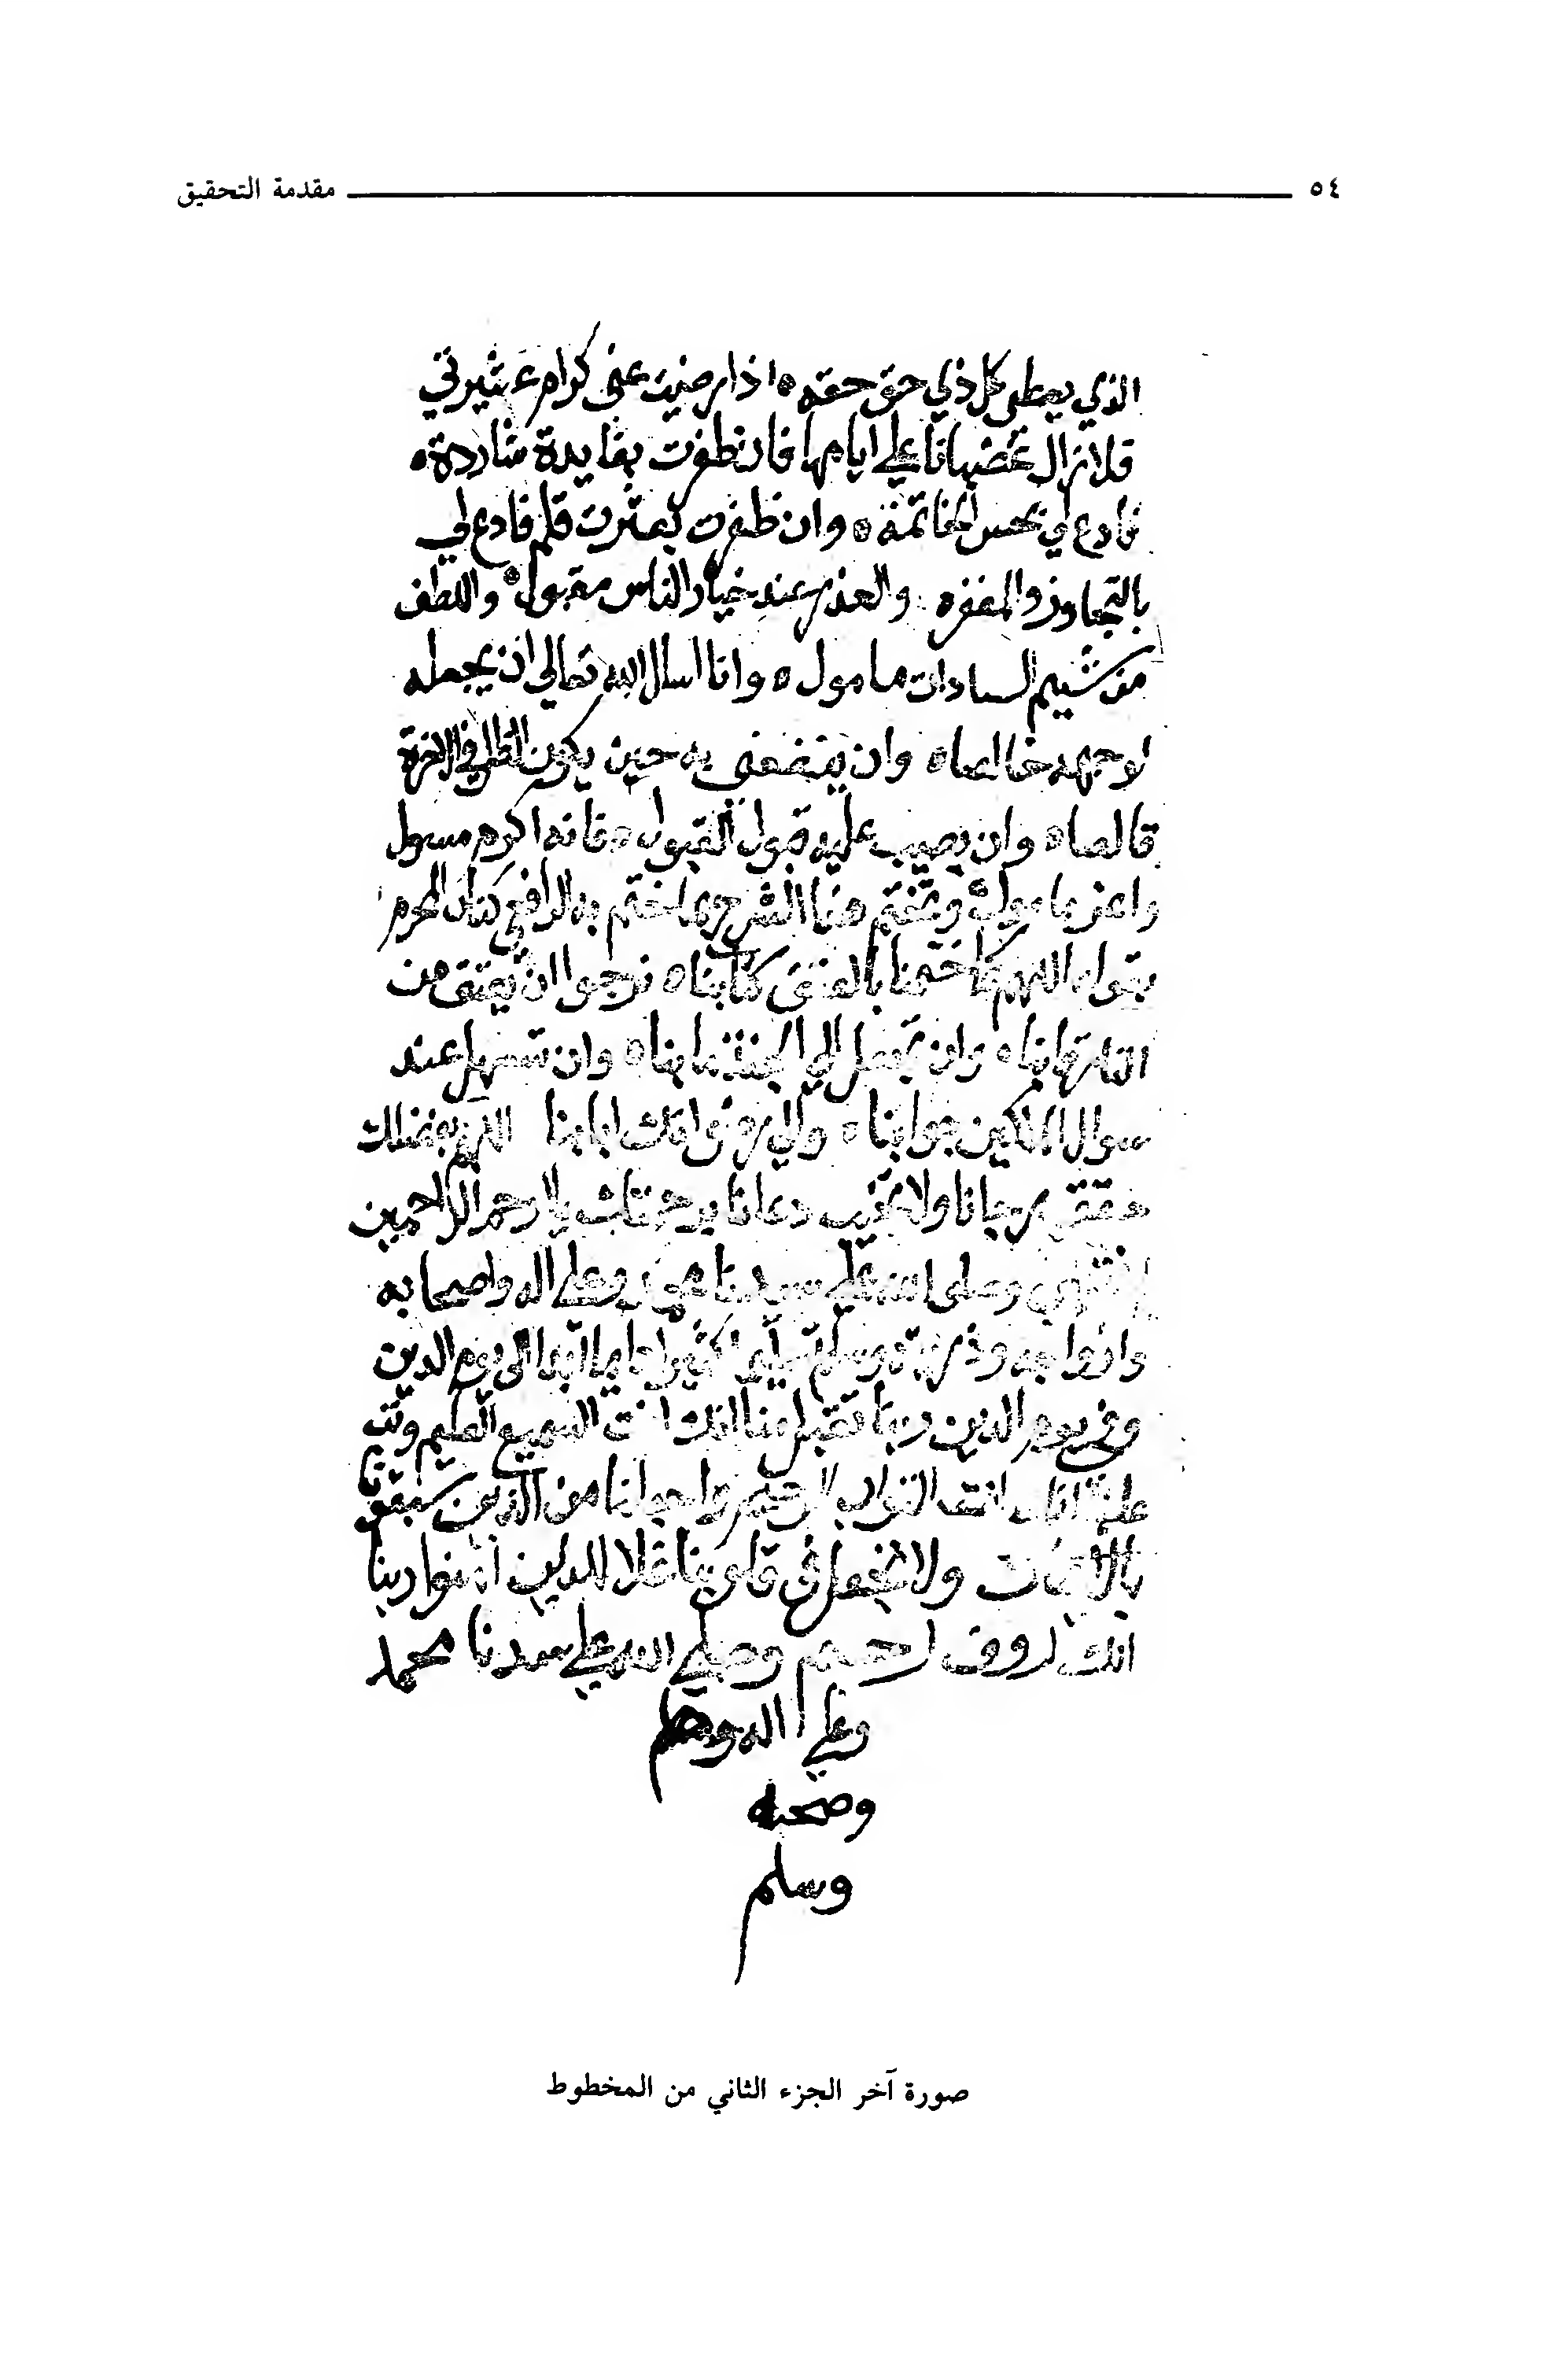 ٥٤ مقدمة التحقيق
الذي يعطي كل ذي حق حقه ه اذا رضيت عني كرام عشيرتي
فلا زال غضبانا علي ايامها فان ظفرت بفايدة شاردة ه
فادع لي بحسن الخاتمة ه وان ظفرت بعثرت قلم فادع لي
بالتجاوز والمغفره والعذر عند خيار الناس مقبول ه واللطف
من شيم السادات مامول ه وانا اسال الله تعالي ان يجعله
لوجهه خالصا ه وان ينفعني به حين يكون الظل في الاخرة
قالصا ه وان يصيب عليه قبول القبول ه فانه اكرم مسول
واعز مامول ه ونختم هذا الشرح بما ختم به الرافعي كتابه المحرم
بقوله اللهم كما ختمنا بالعتق كتابنا ه نرجوا ان تعتق من
النار رقابنا ه وان تجعل الي الجنة مابنا ه وان تسهل عند
سوال الملكين جوابنا ه والي رضوانك ايابنا اللهم بفضلك
حقق رجانا ولا تخيب دعانا برحمتك يا ارحم الراحمين
انتهي وصلى الله علي سيدنا محمد وعلي اله واصحابه
وازواجه وذريته وسلم تسليما كثيرا دايما ابدا الي يوم الدين
وفي يوم الدين ربنا تقبل منا انك انت السميع العليم وتب
علينا انك انت التواب الرحيم واخواننا من الذين سبقونا
بالايمان ولا تجعل في قلوبنا غلا للذين امنوا ربنا
انك لروف رحيم وصلي الله علي سيدنا محمد
وعلي اله
وصحبه
وسلم
صورة آخر الجزء الثاني من المخطوط